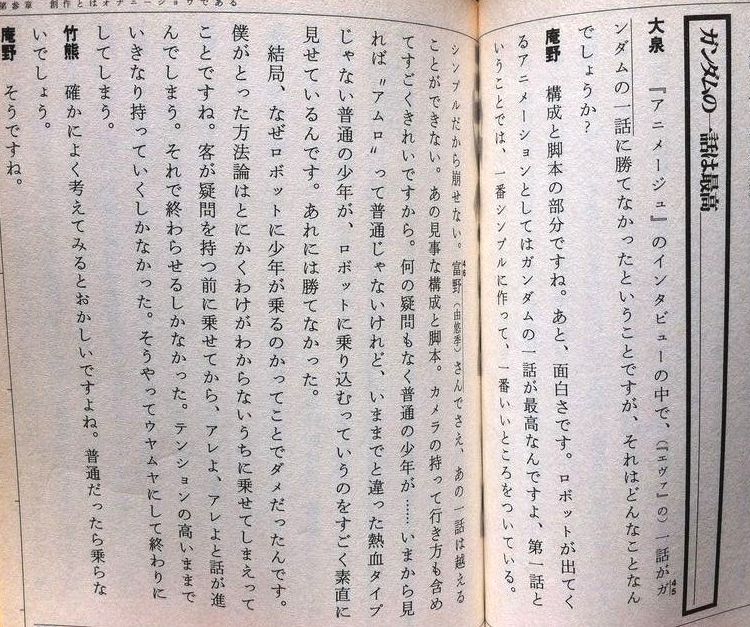 ガンダムの一話は最高
大泉　『アニメージュ』のインタビューの中で、(『エヴァ』の)一話がガ
45
ンダムの一話に勝てなかったということですが、それはどんなことなん
でしょうか?
庵野　構成と脚本の部分ですね。あと、面白さです。ロボットが出てく
るアニメーションとしてはガンダムの一話が最高なんですよ、第一話と
いうことでは、一番シンプルに作って、一番いいところをついている。
第参章　創作とはオナニーショウである
シンプルだから崩せない。富野(由悠季)さんでさえ、あの一話は越える
46
ことができない。あの見事な構成と脚本。カメラの持って行き方も含め
てすごくきれいですから。何の疑問もなく普通の少年が……いまから見
れば〝アムロ〟って普通じゃないけれど、いままでと違った熱血タイプ
じゃない普通の少年が、ロボットに乗り込むっていうのをすごく素直に
見せているんです。あれには勝てなかった。
結局、なぜロボットに少年が乗るのかってことでダメだったんです。
僕がとった方法論はとにかくわけがわからないうちに乗せてしまえって
ことですね。客が疑問を持つ前に乗せてから、アレよ、アレよと話が進
んでしまう。それで終わらせるしかなかった。テンションの高いままで
いきなり持っていくしかなかった。そうやってウヤムヤにして終わりに
してしまう。
竹熊　確かによく考えてみるとおかしいですよね。普通だったら乗らな
いでしょう。
庵野　そうですね。